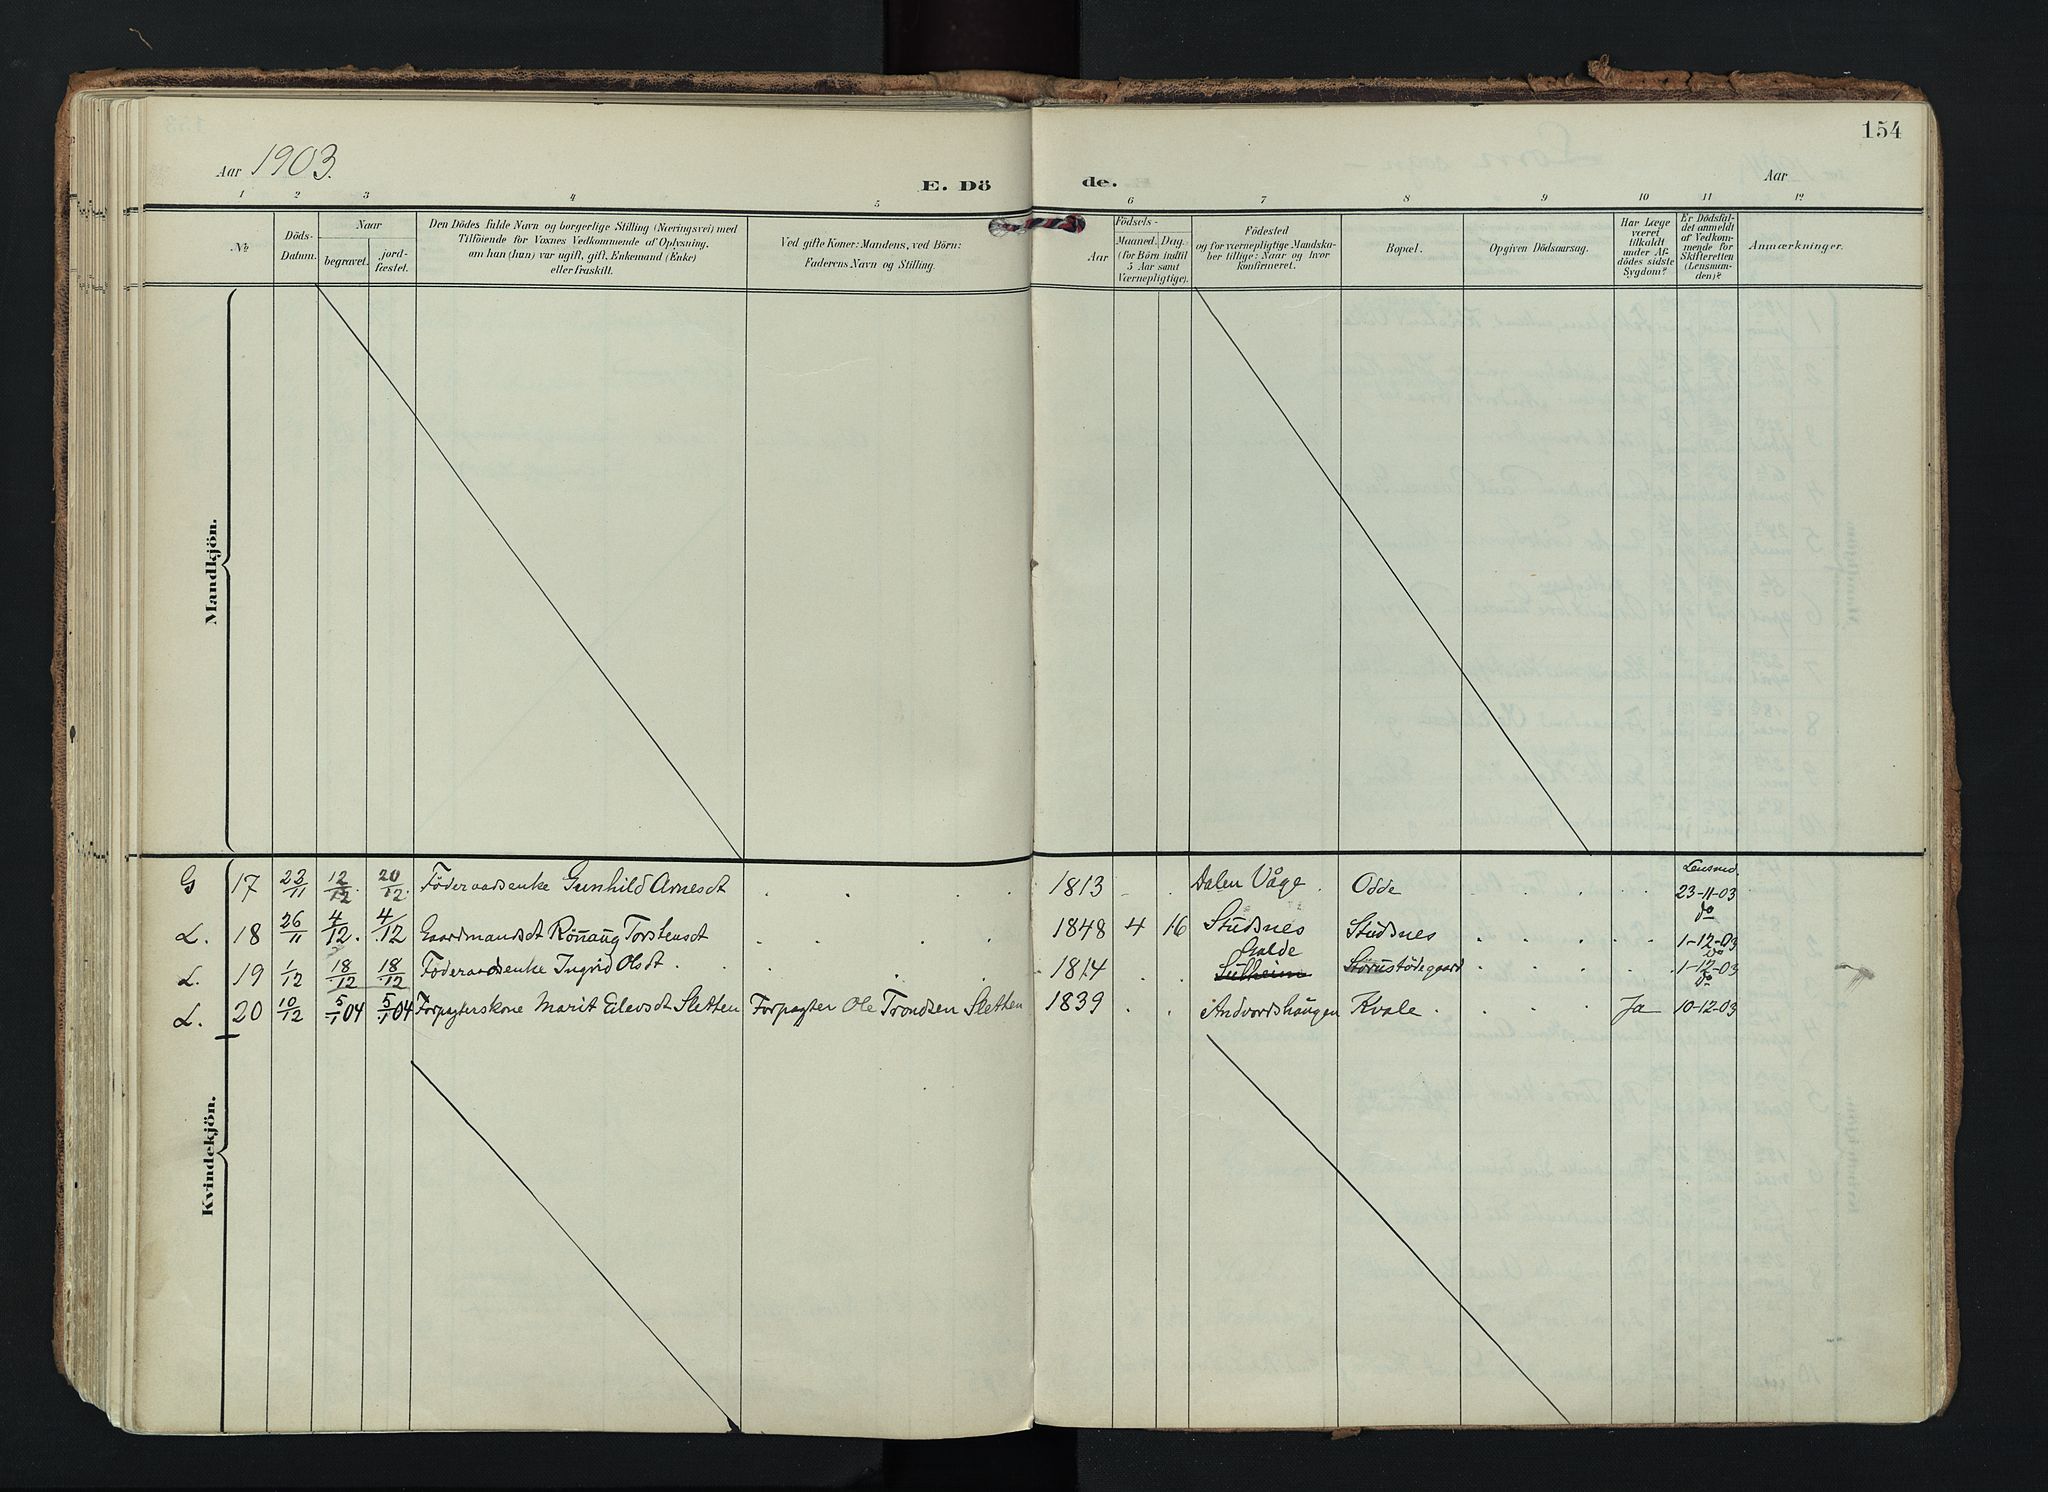 154
Aar 1903.
E. Dö
de.
Aar
1 2 3 4 5 6 7 8 9 10 11 12
No.
Döds-
Datum.
Naar
begravet.
jord-
fæstet.
Den Dödes fulde Navn og borgerlige Stilling (Næringsvei) med
Tilföiende for Voxnes Vedkommende af Oplysning,
om han (hun) var ugift, gift, Enkemand (Enke)
eller fraskilt.
Ved gifte Koner: Mandens, ved Börn:
Faderens Navn og Stilling.
Födsels-
Aar
Maaned. Dag.
(for Börn indtil
5 Aar samt
Værnepligtige).
Födested
og for værnepligtige Mandska-
ber tillige: Naar og hvor
konfirmeret.
Bopæl.
Opgiven Dödsaarsag.
Har Læge
været
tilkaldt
under Af-
dödes sidste
Sygdom?
Er Dödsfal-
det anmeldt
af Vedkom-
mende for
Skifteretten
(Lensman-
den)?
Anmærkninger.
Mandkjön.
Kvindekjön.
G 17 23/11 12/12. 20/12. Föderaadsenke Gunhild Arnesdt 1813 Dalen Våge. Odde Lensmd. 23-11-03
L. 18 26/11 4/12. 4/12 Gaardmandsdt Rönnaug Torstensdt 1848 4 16 Studsnes Studsnes do 1-12-03
L. 19 1/12 18/12 18/12 Föderaadsenke Ingrid Olsdt. 1814 Galde Sulheim Storustödegaard do 1-12-03
L. 20 10/12 5/1 04 5/1 04 Forpagterskone Marit Eilevsdt Sletten Forpagter Ole Trondsen Sletten 1839 Andvordshaugen Kvale. Ja do 10-12-03